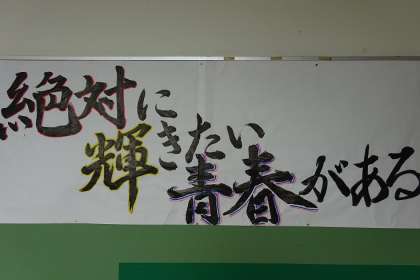 絶対に
輝きたい
青春がある